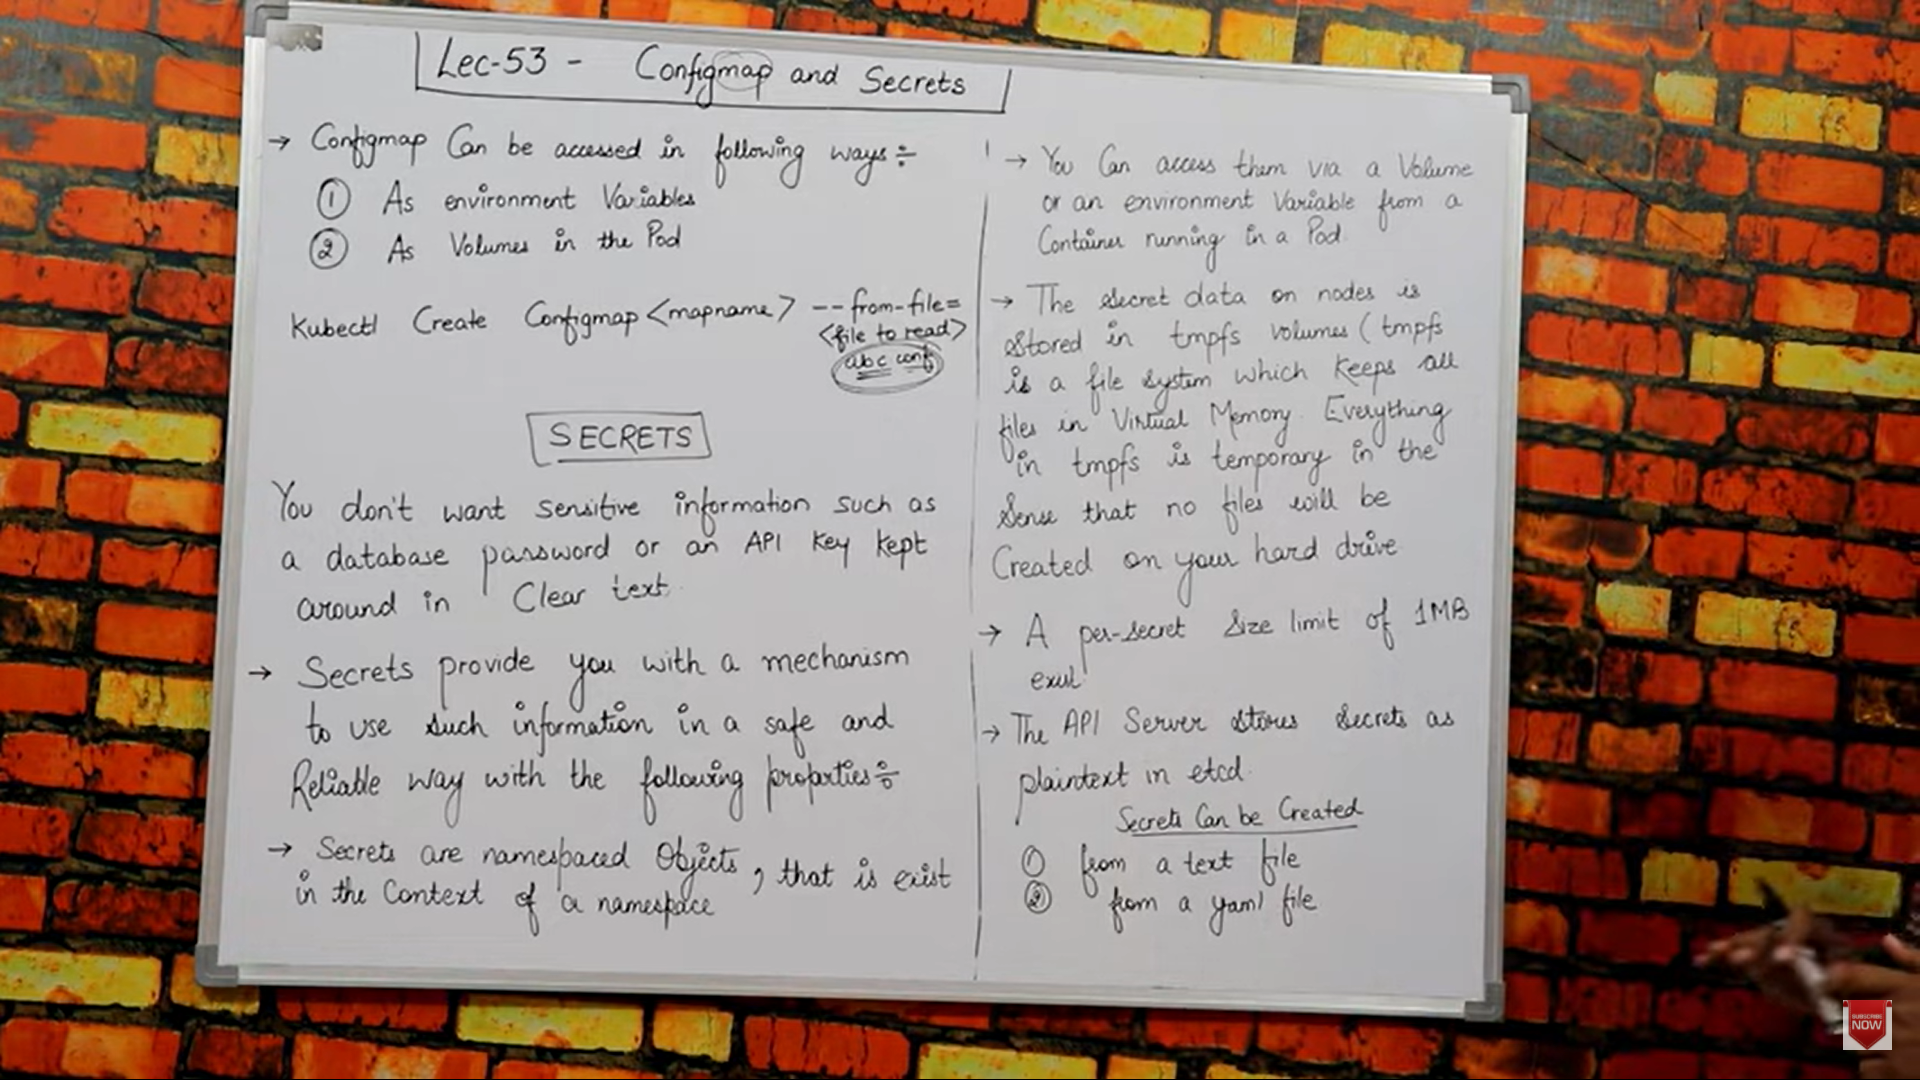 Lec-53 - Configmap and Secrets
→ Configmap Can be accessed in following ways÷
① As environment Variables
② As Volumes in the Pod
Kubectl Create Configmap <mapname> --from-file=
<file to read>
abc conf
SECRETS
You don't want sensitive information such as
a database password or an API Key kept
around in Clear text.
→ Secrets provide you with a mechanism
to use such information in a safe and
Reliable way with the following properties÷
→ Secrets are namespaced Objects, that is exist
in the Context of a namespace
→ You Can access them via a Volume
or an environment Variable from a
Container running in a Pod.
→ The secret data on nodes is
Stored in tmpfs volumes (tmpfs
is a file system which keeps all
files in Virtual Memory. Everything
in tmpfs is temporary in the
Sense that no files will be
Created on your hard drive
→ A per-secret size limit of 1MB
→ The API Server stores Secrets as
plaintext in etcd.
Secrets Can be Created
① from a text file
② from a yaml file
SUBSCRIBE
NOW